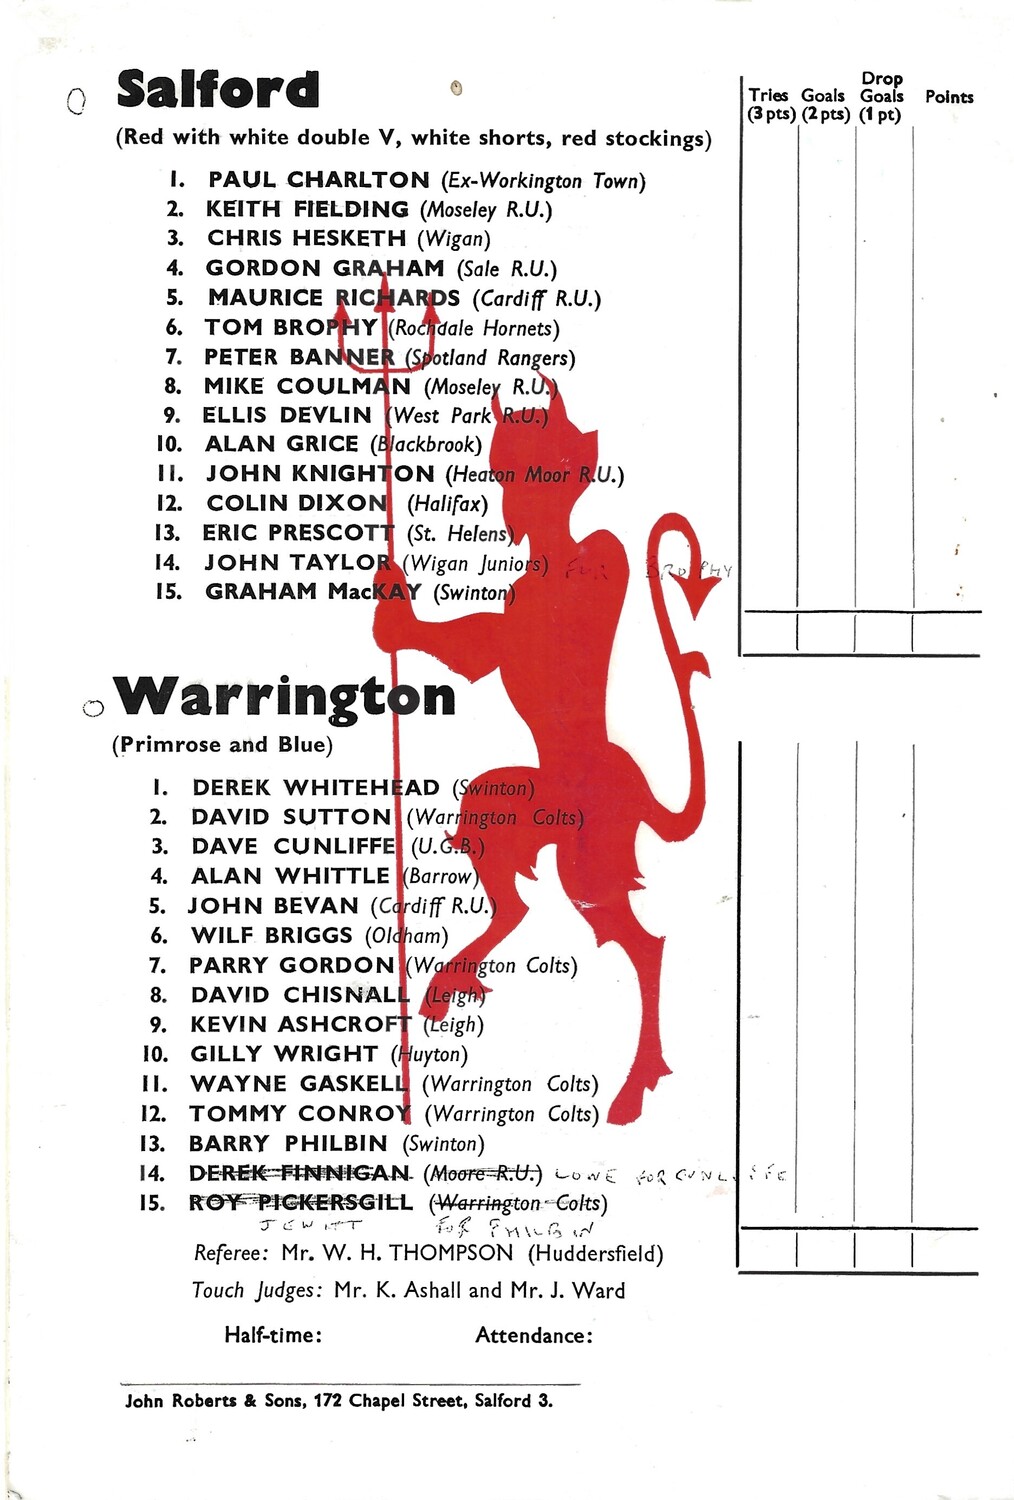 Salford
(Red with white double V, white shorts, red stockings)
Tries Goals Drop Goals Points
(3 pts) (2 pts) (1 pt)
1. PAUL CHARLTON (Ex-Workington Town)
2. KEITH FIELDING (Moseley R.U.)
3. CHRIS HESKETH (Wigan)
4. GORDON GRAHAM (Sale R.U.)
5. MAURICE RICHARDS (Cardiff R.U.)
6. TOM BROPHY (Rochdale Hornets)
7. PETER BANNER (Spotland Rangers)
8. MIKE COULMAN (Moseley R.U.)
9. ELLIS DEVLIN (West Park R.U.)
10. ALAN GRICE (Blackbrook)
11. JOHN KNIGHTON (Heaton Moor R.U.)
12. COLIN DIXON (Halifax)
13. ERIC PRESCOTT (St. Helens)
14. JOHN TAYLOR (Wigan Juniors) FOR BROPHY
15. GRAHAM MacKAY (Swinton)
O Warrington
(Primrose and Blue)
1. DEREK WHITEHEAD (Swinton)
2. DAVID SUTTON (Warrington Colts)
3. DAVE CUNLIFFE (U.G.B.)
4. ALAN WHITTLE (Barrow)
5. JOHN BEVAN (Cardiff R.U.)
6. WILF BRIGGS (Oldham)
7. PARRY GORDON (Warrington Colts)
8. DAVID CHISNALL (Leigh)
9. KEVIN ASHCROFT (Leigh)
10. GILLY WRIGHT (Huyton)
11. WAYNE GASKELL (Warrington Colts)
12. TOMMY CONROY (Warrington Colts)
13. BARRY PHILBIN (Swinton)
14. DEREK FINNIGAN (Moore R.U.) LOWE FOR CUNLIFFE
15. ROY PICKERSGILL (Warrington Colts)
JEWITT FOR PHILBIN
Referee: Mr. W. H. THOMPSON (Huddersfield)
Touch Judges: Mr. K. Ashall and Mr. J. Ward
Half-time: Attendance:
John Roberts & Sons, 172 Chapel Street, Salford 3.